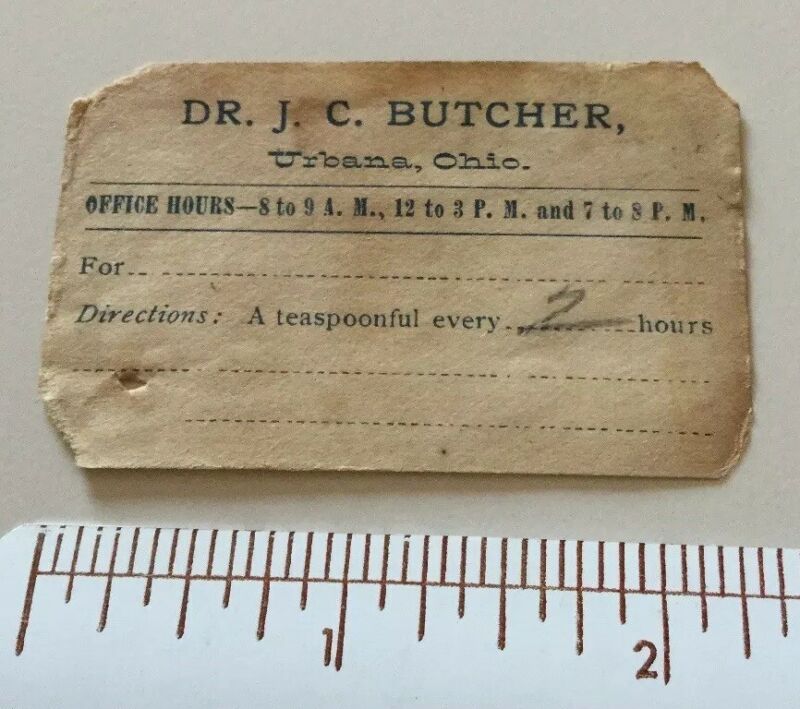 DR. J. C. BUTCHER,
Urbana, Ohio.
OFFICE HOURS—8 to 9 A. M., 12 to 3 P. M. and 7 to 8 P. M.
For
Directions: A teaspoonful every 2 hours
1 2